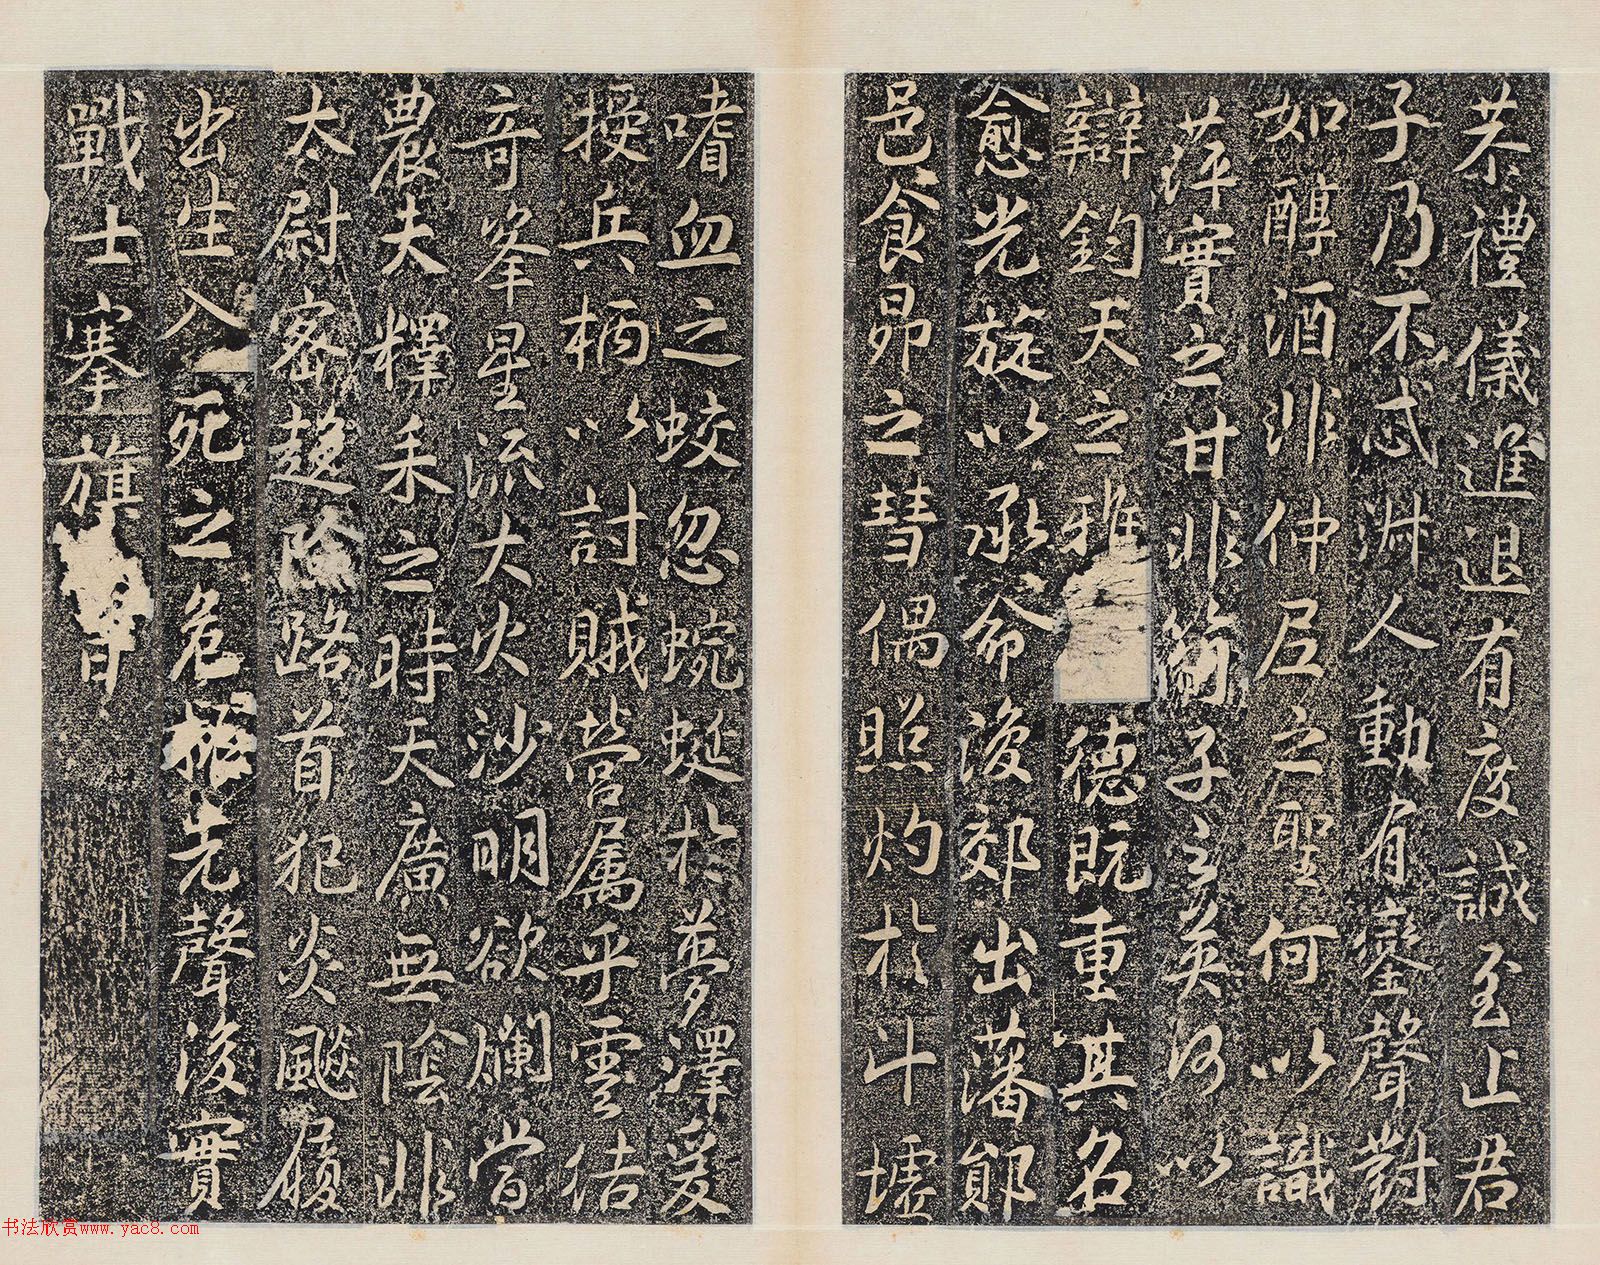 恭禮儀進退有度誠至止君
子乃不忒淋人動有鑾聲對
如醇酒非仲尼之聖何以識
萍實之甘非蘭子之英何以
辯鈞天之雅德既重其名
愈光旋以承命浚郊出藩鄖
邑食昴之彗偶照灼於斗墟
嗜血之蛟忽蜿蜒於夢澤爰
授兵柄以討賊營属乎雲佶
奇峯星流大火沙明欲爛當
農夫釋耒之時天廣無陰非
太尉密趍險路首犯炎飈履
出生入死之危振先聲後實
戰士搴旗日
书法欣赏www.yac8.com